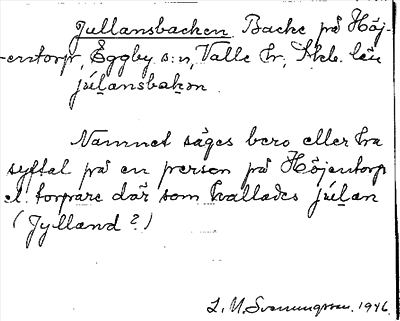 Jullansbacken Backe på Höj-
entorp, Eggby s:n, Valle hr, Skb. län
júlansbakən
Namnet säges bero eller ha
syftal på en person på Höjentorp
el. torpare där som kallades júlan
(Jylland?)
L. M. Svenungsson. 1946.